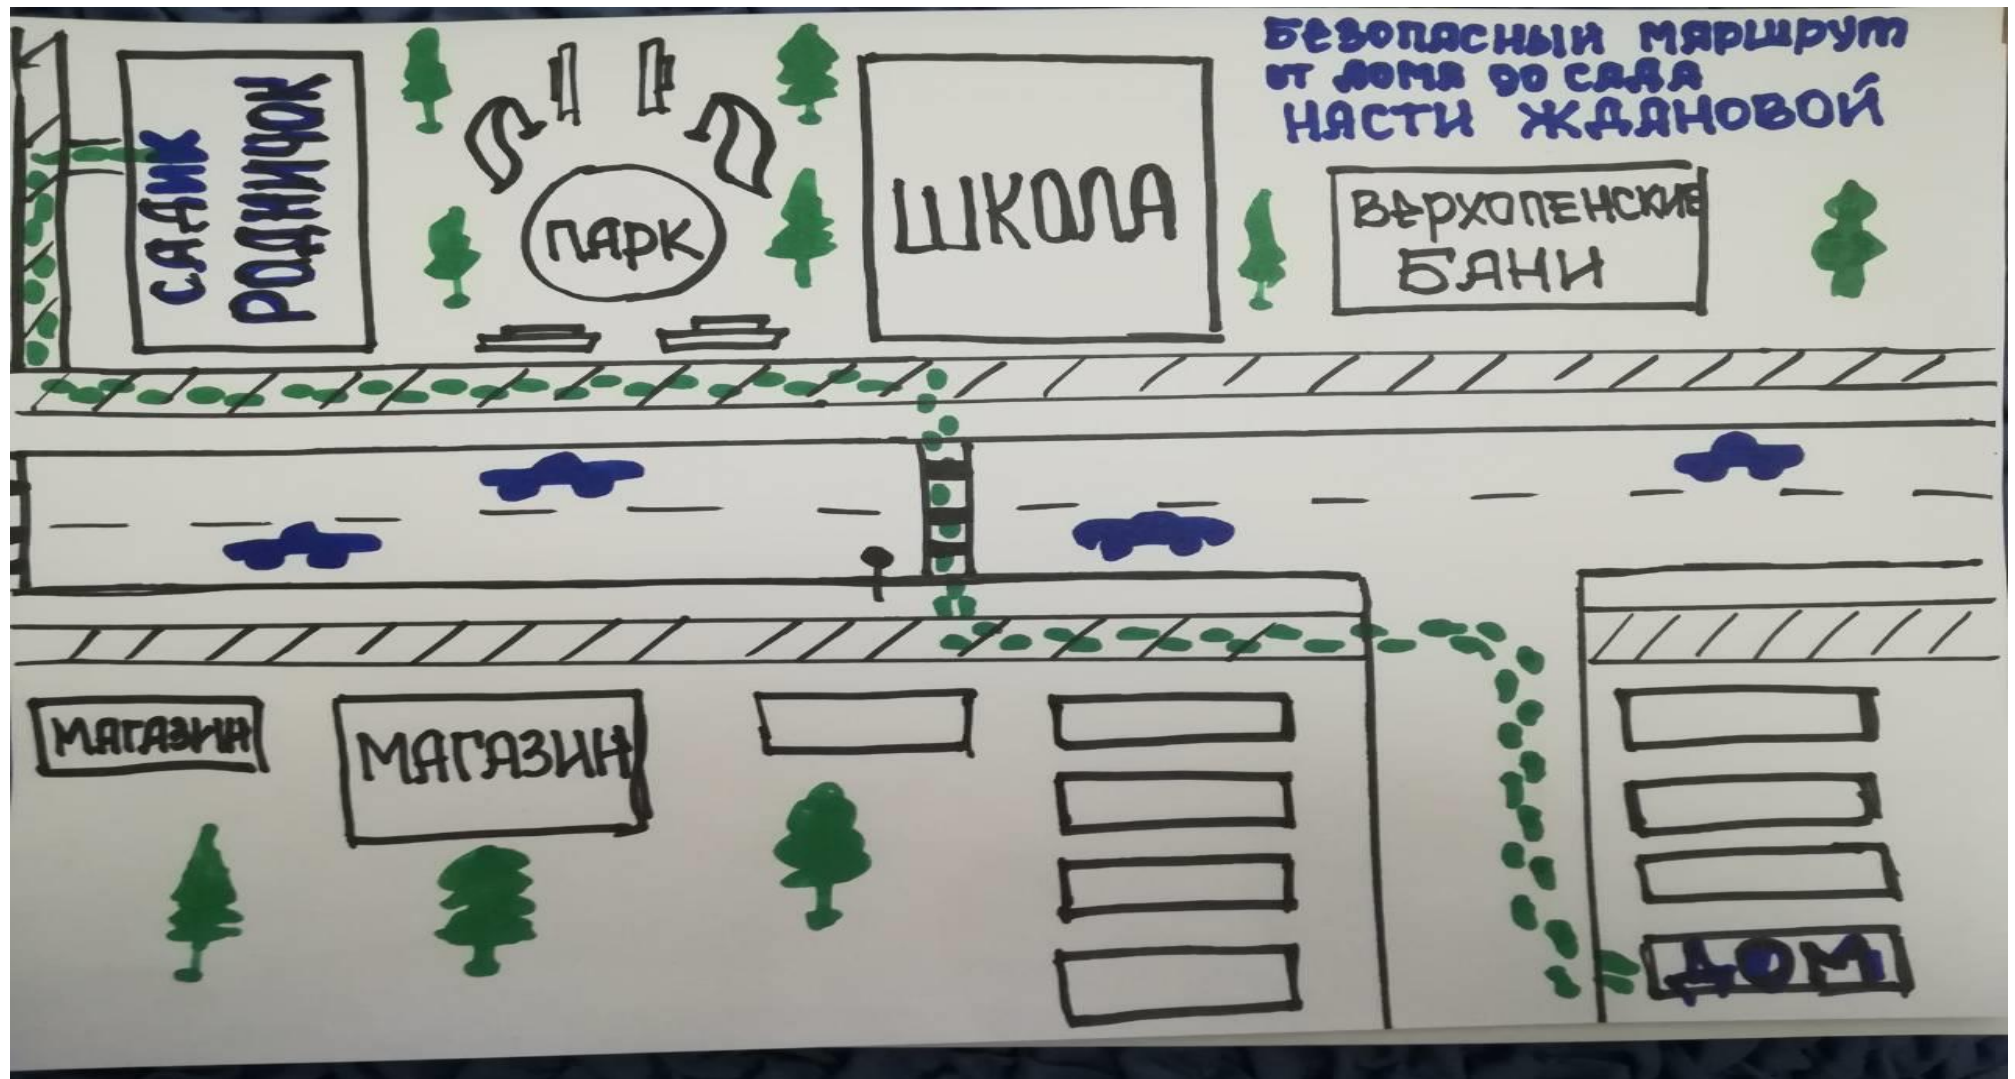 БЕЗОПАСНЫЙ МАРШРУТ
ОТ ДОМА ДО САДА
НАСТИ ЖДАНОВОЙ
САДИК
РОДНИЧОК
ПАРК
ШКОЛА
ВЕРХОПЕНСКИЕ
БАНИ
МАГАЗИН
МАГАЗИН
ДОМ